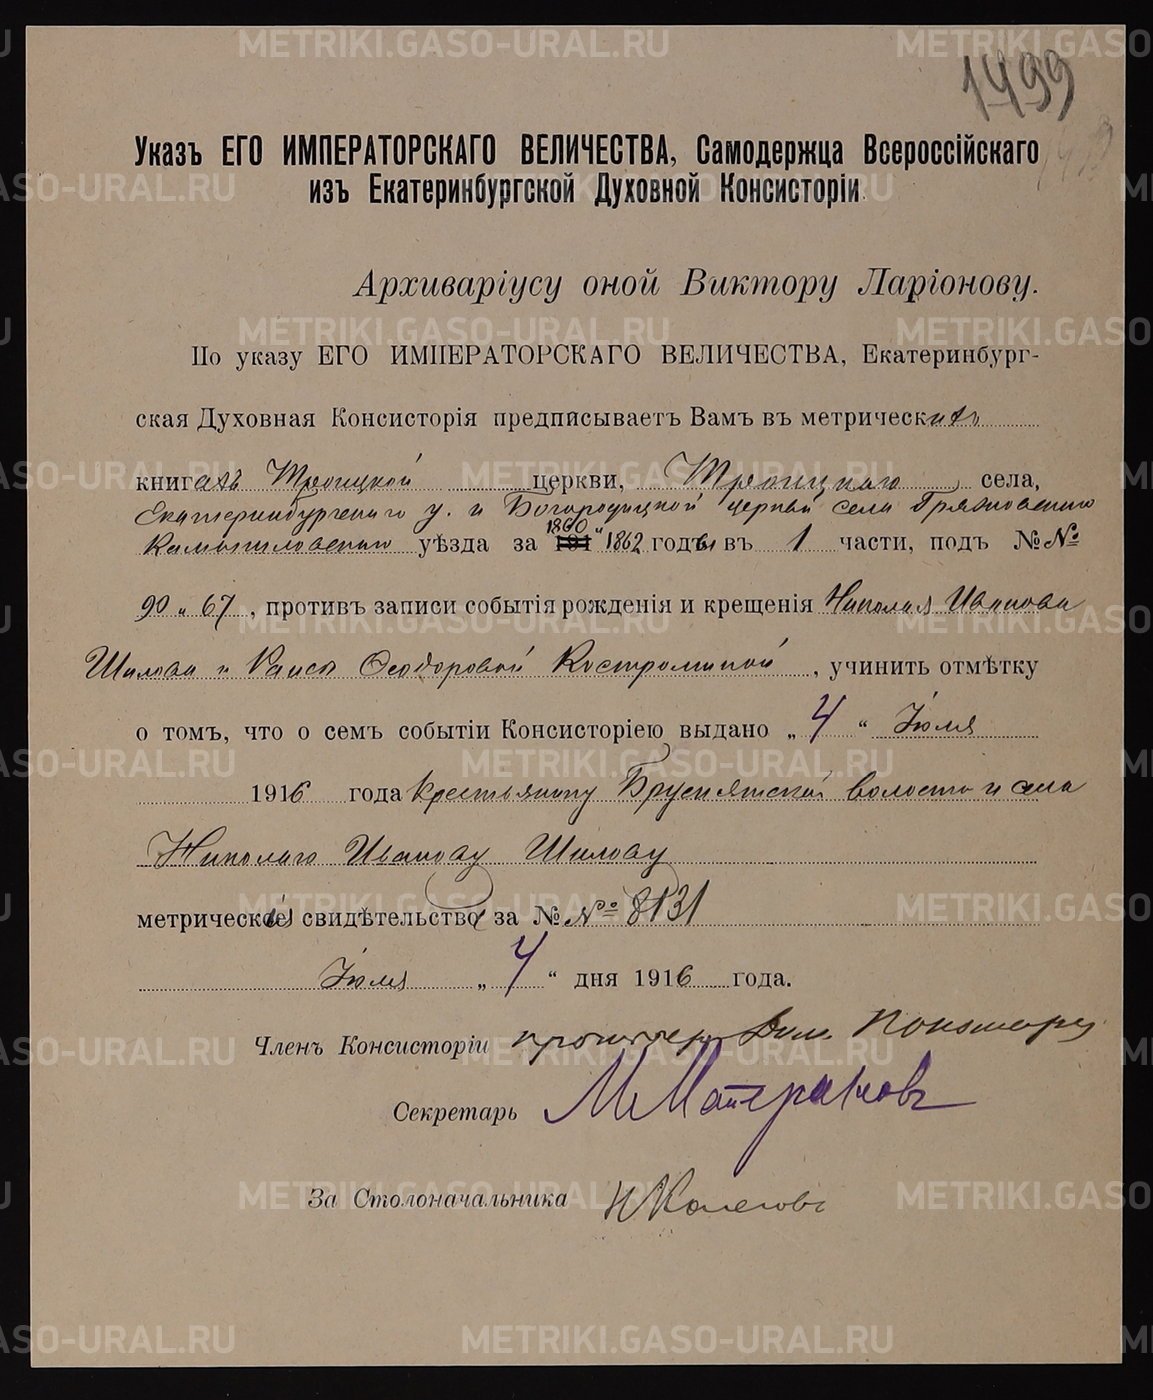 1499
Указъ ЕГО ИМПЕРАТОРСКАГО ВЕЛИЧЕСТВА, Самодержца Всероссійскаго
изъ Екатеринбургской Духовной Консисторіи
Архиваріусу оной Виктору Ларіонову.
По указу ЕГО ИМПЕРАТОРСКАГО ВЕЛИЧЕСТВА, Екатеринбург-
ская Духовная Консисторія предписываетъ Вамъ въ метрическихъ
книгахъ Троицкой церкви, Троицкаго села,
Екатеринбургскаго у. и Богородицкой церкви села Грязновскаго
1860
Камышловскаго уѣзда за 191 " 1862 годы въ 1 части, подъ №№
90 и 67, противъ записи событія рожденія и крещенія Николая Иванова
Шилова и Раисы Ѳеодоровой Костроминой, учинить отмѣтку
о томъ, что о семъ событіи Консисторіею выдано „4“ Іюля
1916 года крестьянину Бруснятской волости и села
Николаю Иванову Шилову
метрическія свидѣтельства за № № 8131
Іюля „4“ дня 1916 года.
Членъ Консисторіи протоіерей
Секретарь М Матерановъ
За Столоначальника Н
METRIKI.GASO-URAL.RU